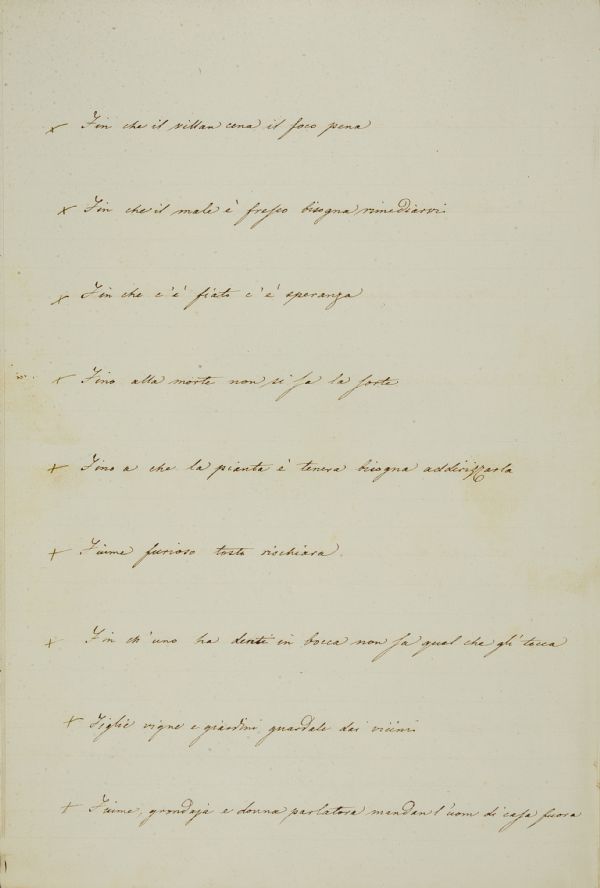 x Fin che il villan cena il foco pena
x Fin che il male è fresco bisogna rimediarvi
x Fin che c'è fiato c'è speranza
x Fino alla morte non si sa la sorte
+ Fino a che la pianta è tenera bisogna addirizzarla
+ Fiume furioso tosto rischiara.
+ Fin ch'uno ha denti in bocca non sa quel che gli tocca
+ Figlie vigne e giardini guardale dai vicini
+ Fiume, grondaja e donna parlatora mandan l'uom di casa fuora